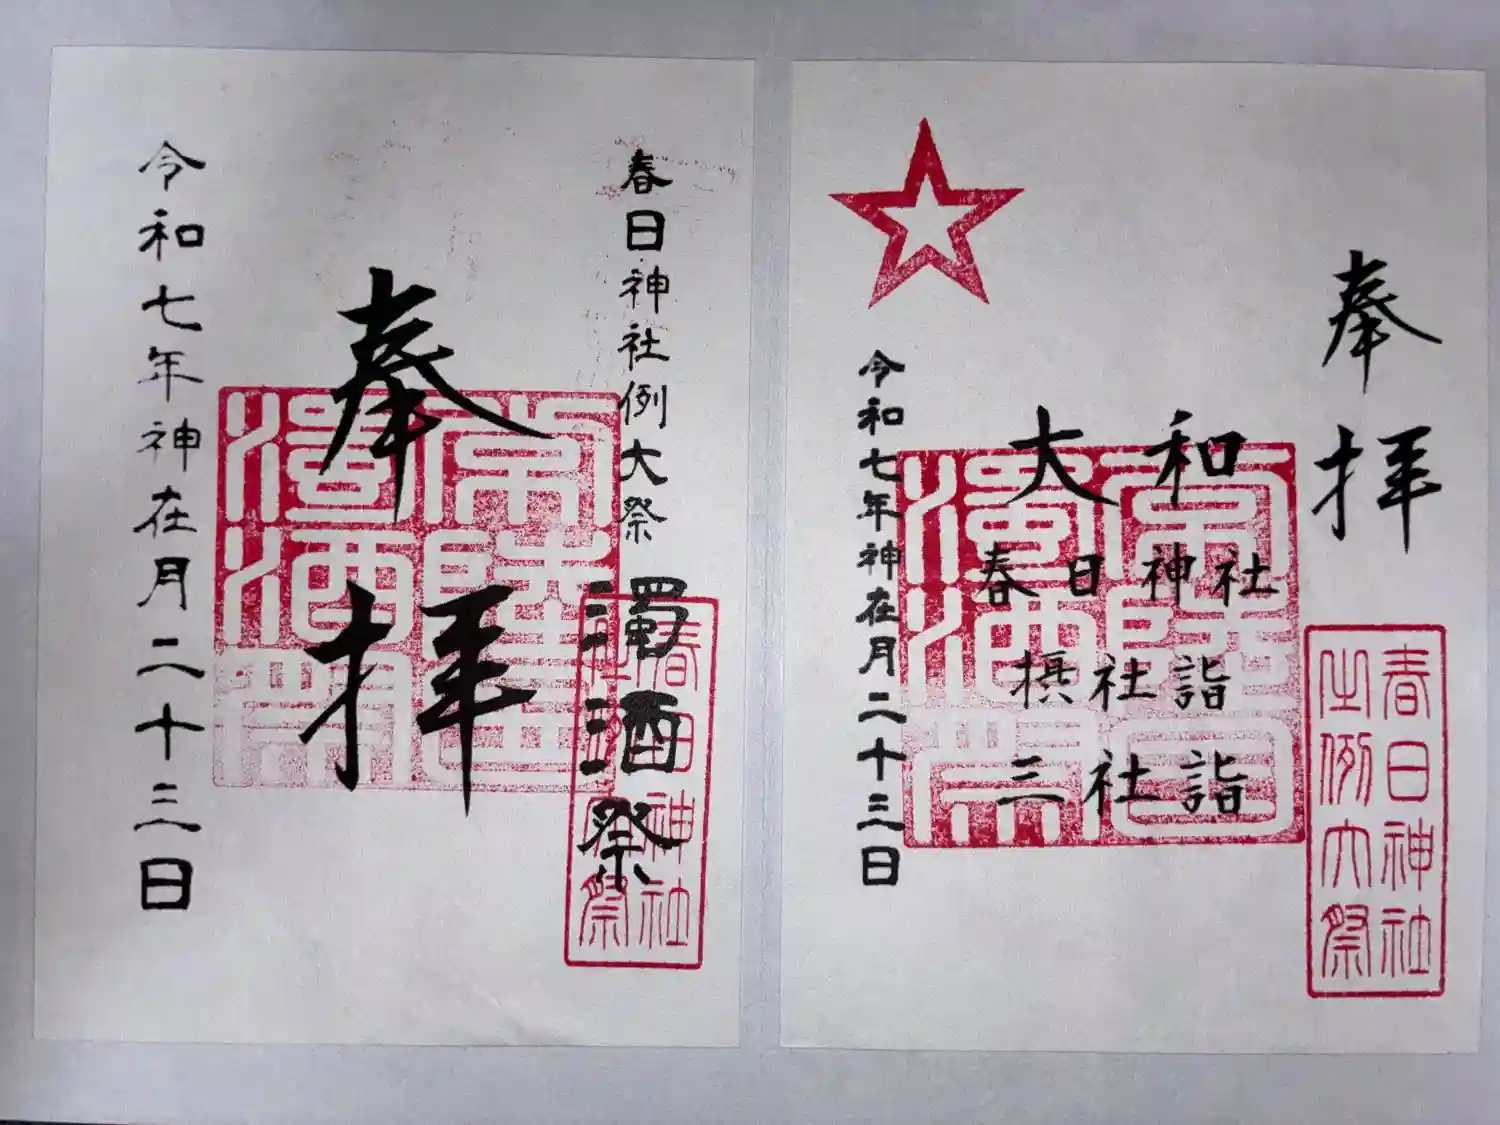 春日神社例大祭
濁酒祭
奉拝
令和七年神在月二十三日
常陸
濁酒祭
春日神社
之例大祭
奉拝
大和
春日神社
摂社詣
三社詣
令和七年神在月二十三日
常陸
濁酒祭
春日神社
之例大祭